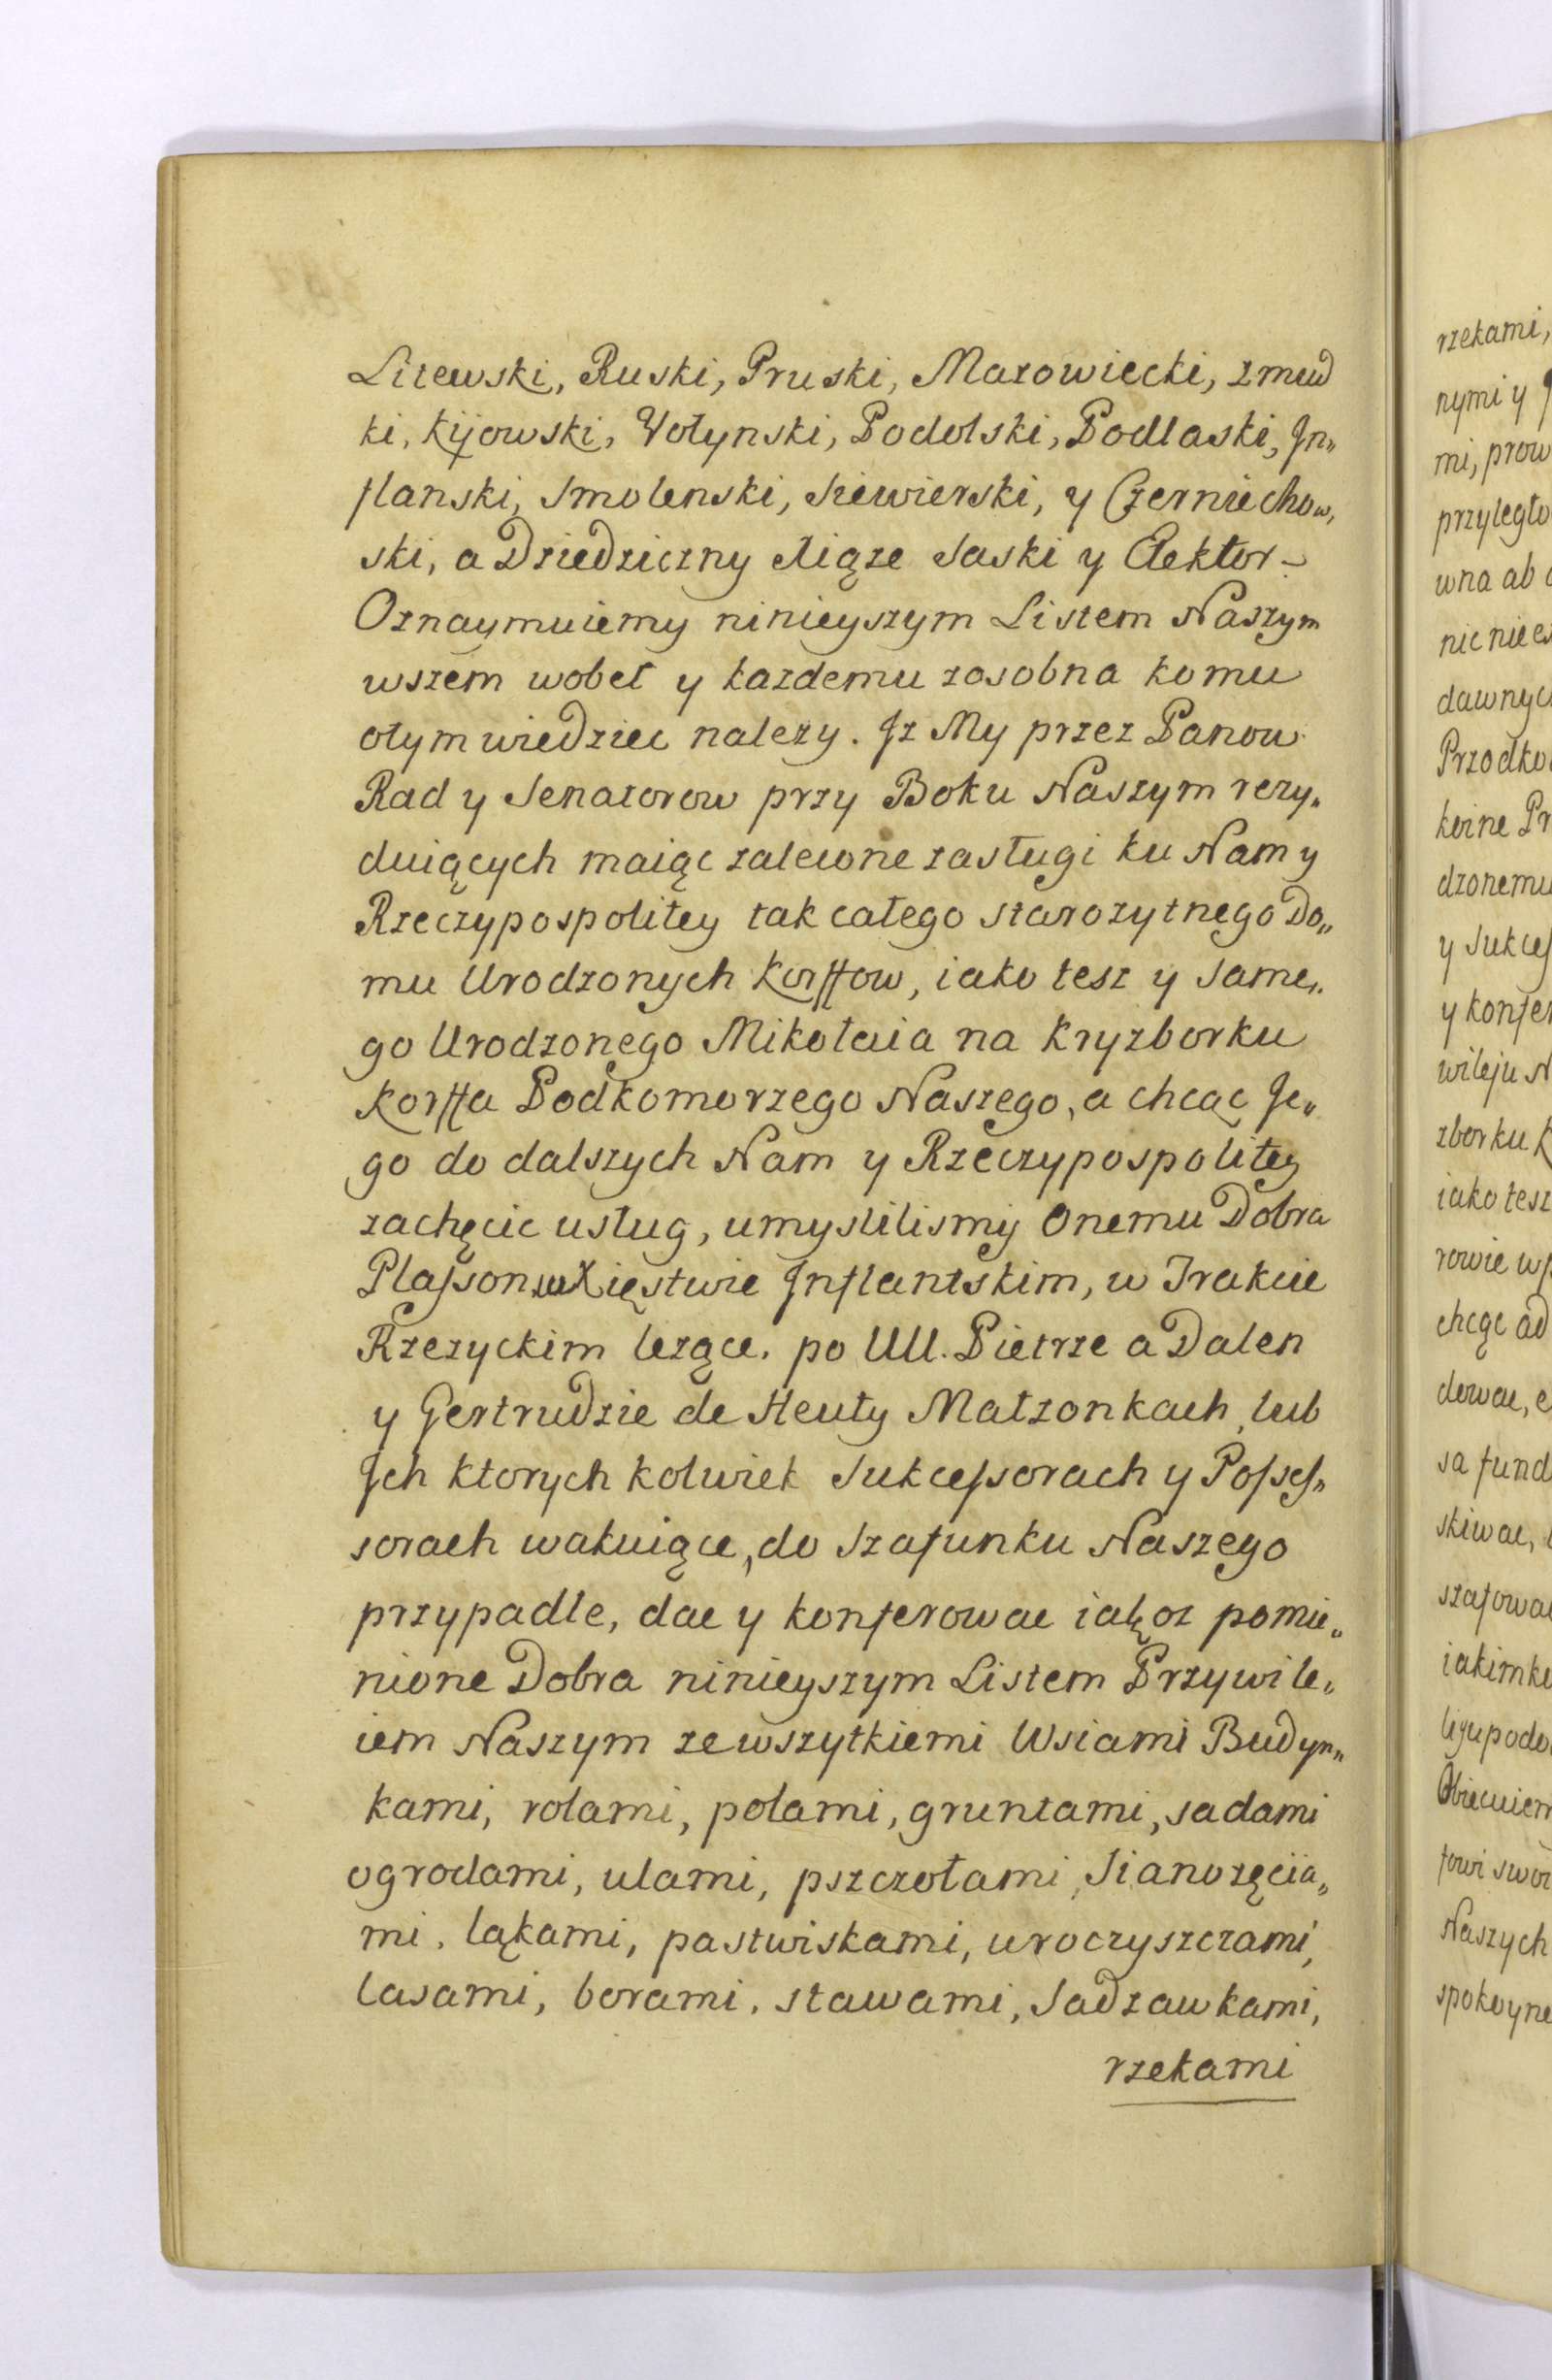 Litewski, Ruski, Pruski, Mazowiecki, zmud
ki, Kijowski, Wołynski, Podolski, Podlaski, Jn„
flanski, Smolenski, Siewierski, y Czerniechow,
ski, a Dziedziczny Xiąze Saski y Elektor –
Oznaymuiemy ninieyszym Listem Naszym
wszem wobec y kazdemu zosobna komu
otym wiedziec nalezy. Jz My przez Panow
Rad y Senatorow przy Boku Naszym rezy„
duiących maiąc zalecone zasługi ku Nam y
Rzeczypospolitey tak całego starozytnego Do„
mu Urodzonych Korffow, iako tesz y same„
go Urodzonego Mikołaia na Kryzborku
Korffa Podkomorzego Naszego, a chcąc Je„
go do dalszych Nam y Rzeczypospolitey
zachęcic usług, umyslilismy Onemu Dobra
Plafson w Xięstwie Jnflantskim, w Trakcie
Rzezyckim lezące. po UU. Pietrze a Dalen
y Gertrudzie de Heuty Małzonkach, lub
Jch ktorych kolwiek Sukcefsorach y Pofsef„
sorach wakuiące, do Szafunku Naszego
przypadle, dac y konferowac iakoz pomie„
nione Dobra ninieyszym Listem Przywile„
iem Naszym ze wszytkiemi Wsiami Budyn„
kami, rolami, polami, gruntami, sadami
ogrodami, ulami, pszczołami, Sianozęcia„
mi, ląkami, pastwiskami, uroczyszczami,
lasami, borami, stawami, Sadzawkami,
rzekami
rzekami,
nymi y
mi, prow
przyległo
wna ab
nic nie
dawnyc
Przodko
dzonemu
y Sukcef
y konfer
wileju N
zborku K
iako tesz
rowie
chcąc ad
dowac,
sa fund
skiwac,
szafowa
Naszych
spokoyne